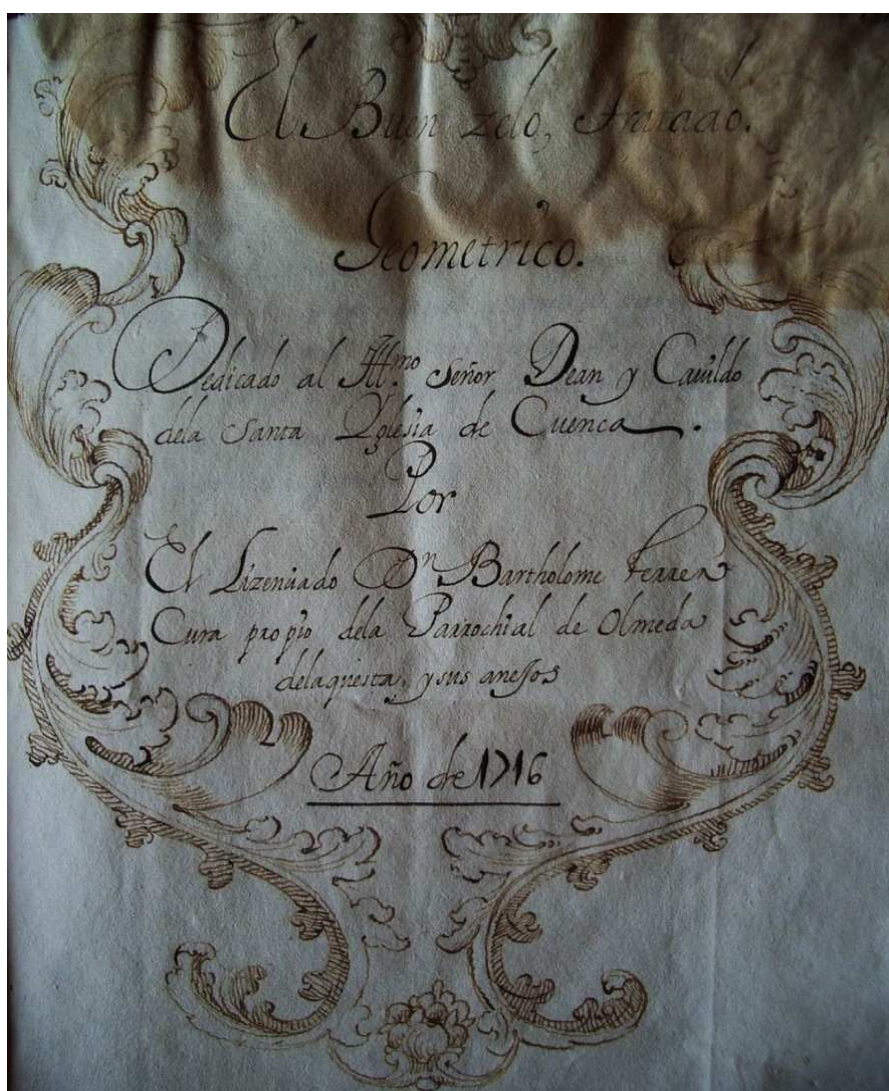 El Buen zelo, tratado.
Geometrico.
Dedicado al Ill.mo Señor Dean y Cavildo
dela Santa Yglesia de Cuenca.
Por
El Lizenciado Dn Bartholome Ferrer
Cura propio dela Parrochial de Olmeda
delaquesta, y sus anejos
Año de 1716